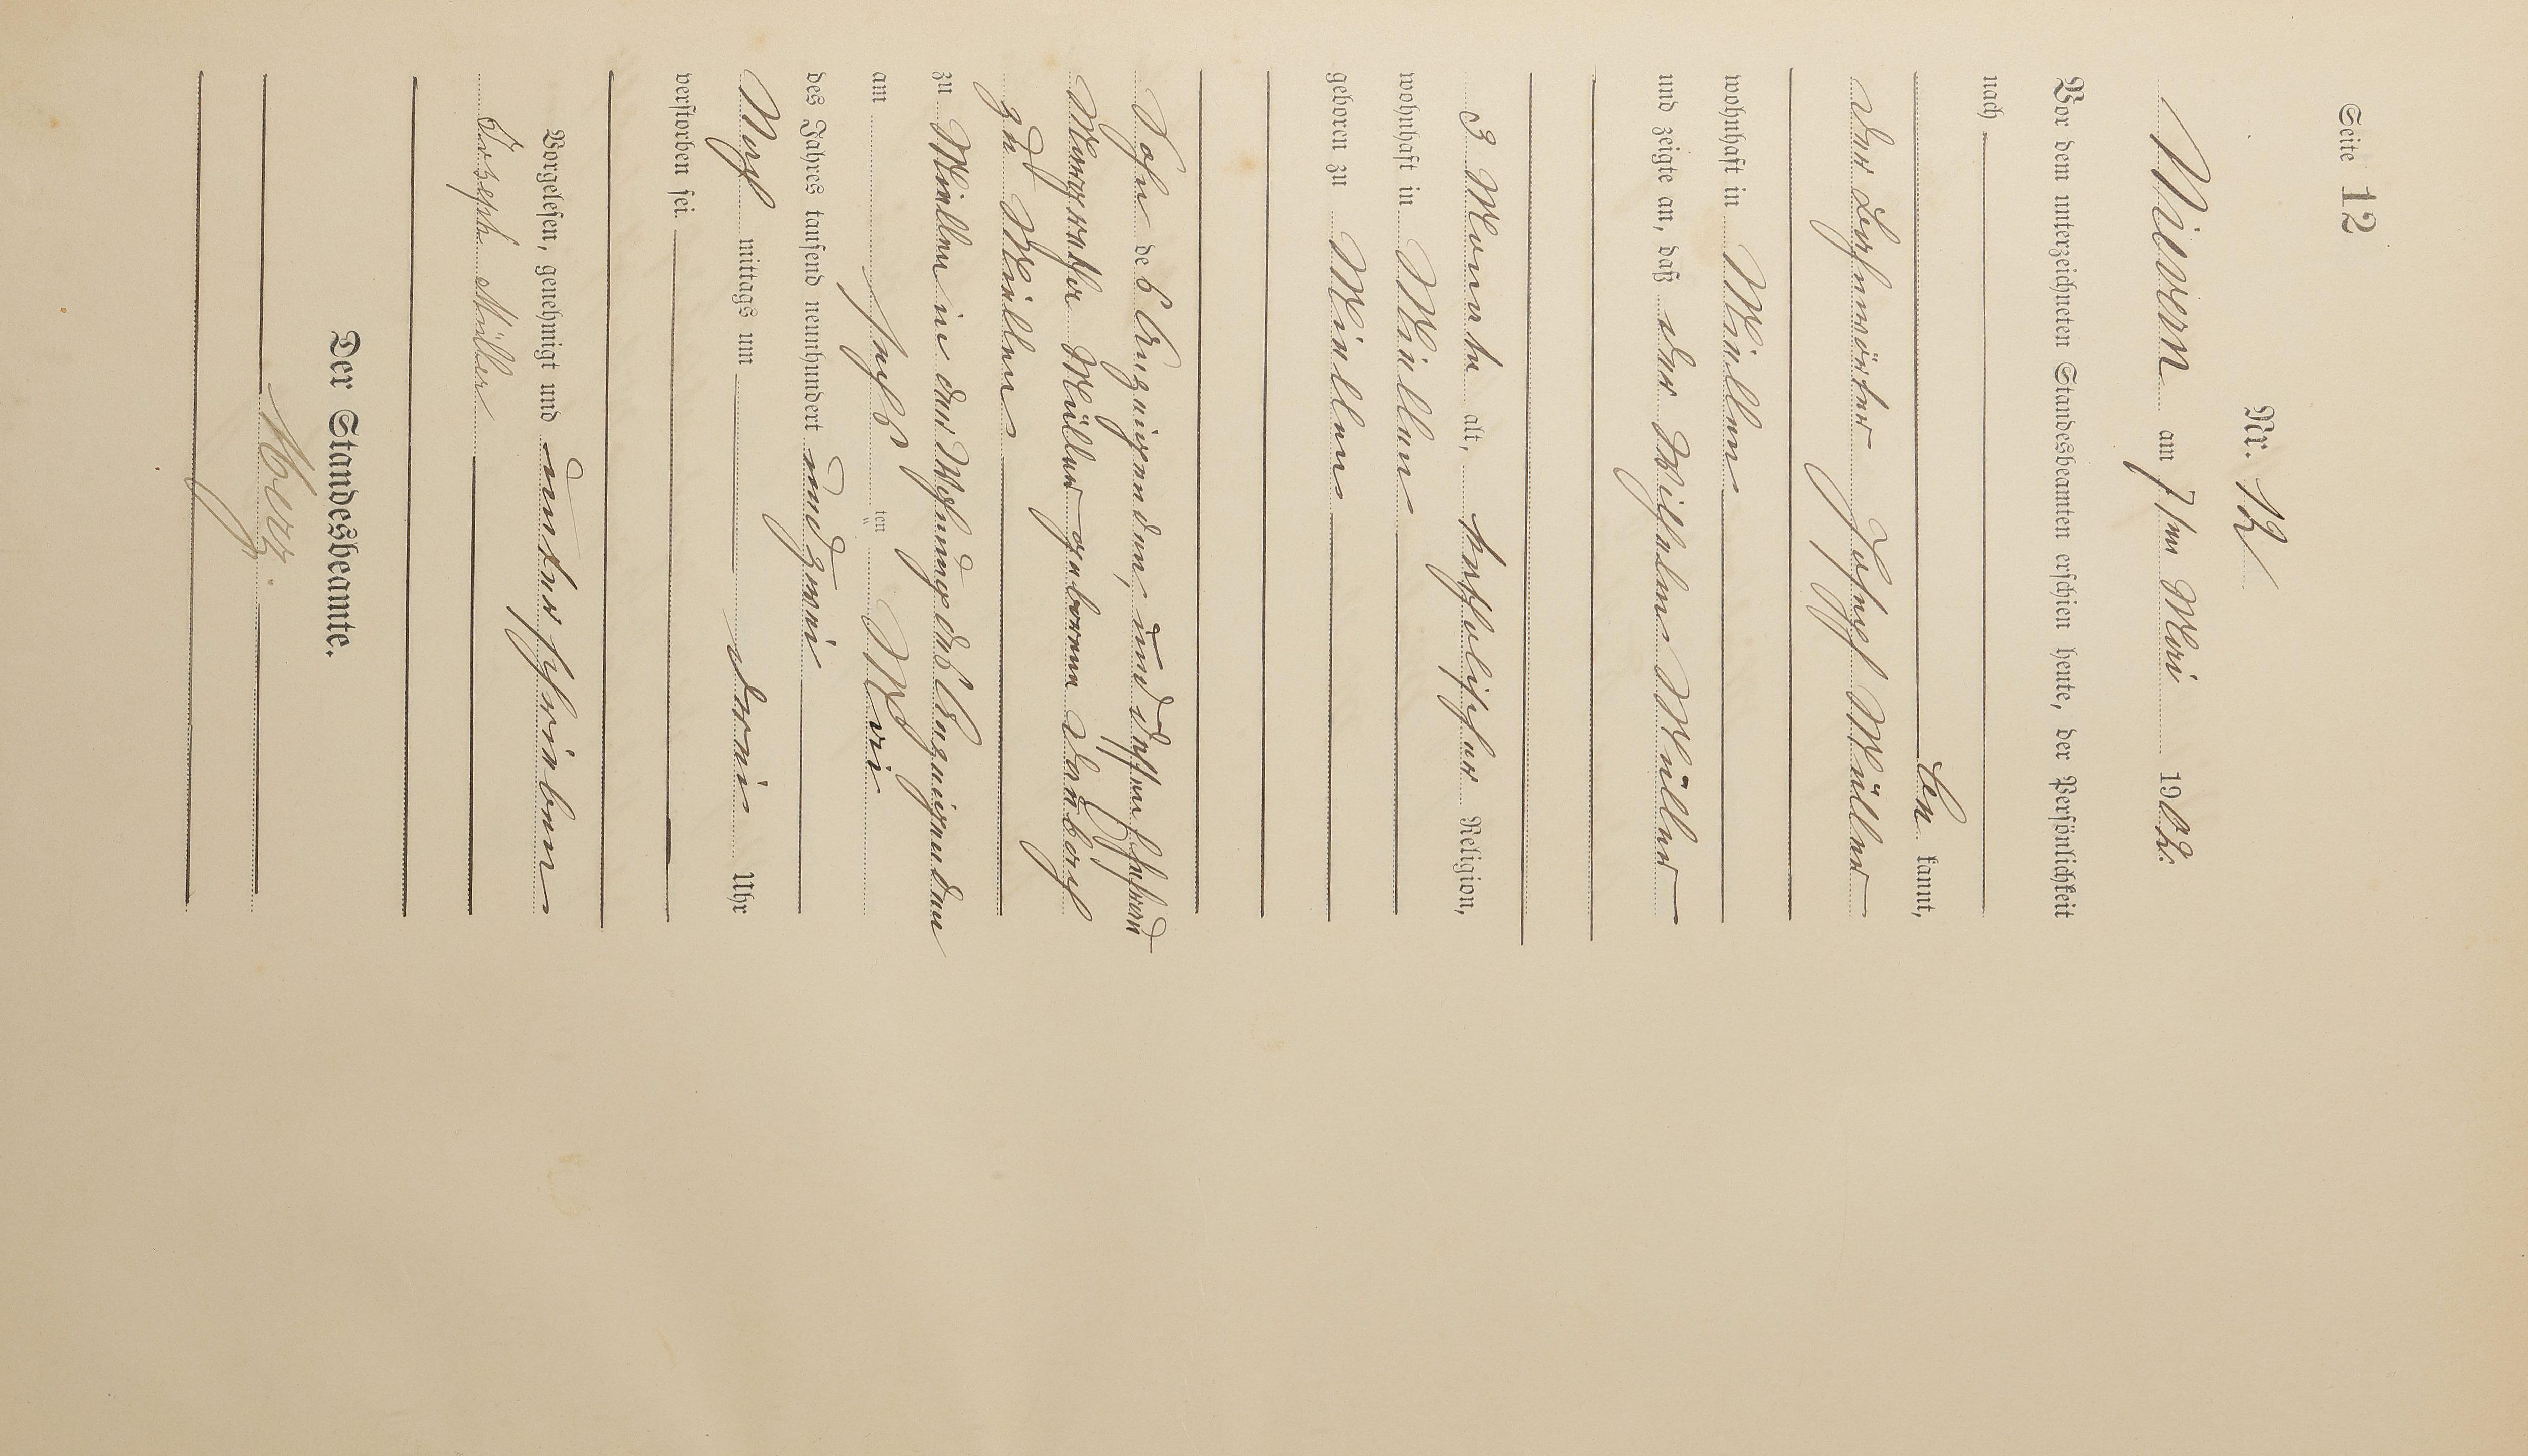 Seite 12
Nr. 12
Nievern am 7ten Mai 1902.
Vor dem unterzeichneten Standesbeamten erschien heute, der Persönlichkeit
nach
be kannt,
der Bahnwärter Josef Müller
wohnhaft in Miellen
und zeigte an, daß der Wilhelm Müller
3 Monate alt, katholischer Religion,
wohnhaft in Miellen
geboren zu Miellen
Sohn des Anzeigenden, und dessen Ehefrau
Margarethe Müller geborene
zu Miellen
zu Miellen in der Wohnung des Anzeigenden
am sechs ten Mai
des Jahres tausend neunhundert und zwei
Nach mittags um drei Uhr
verstorben sei.
Vorgelesen, genehmigt und unterschrieben
Joseph Müller
Der Standesbeamte.
Herz.